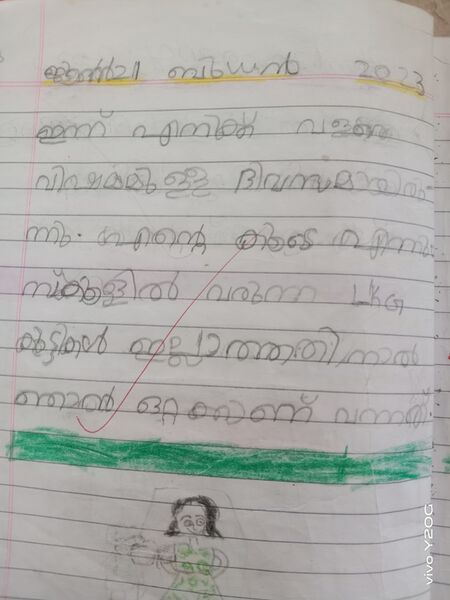 ജൂൺ 21 ബുധൻ 2023
ഇന്ന് എനിക്ക് വളരെ
വിഷമമുള്ള ദിവസമായിരു-
ന്നു. എന്റെ കൂടെ എന്നും
സ്കൂളിൽ വരുന്ന LKG
കുട്ടികൾ ഇല്ലാത്തതിനാൽ
ഞാൻ ഒറ്റക്കാണ് വന്നത്.
vivo Y20G